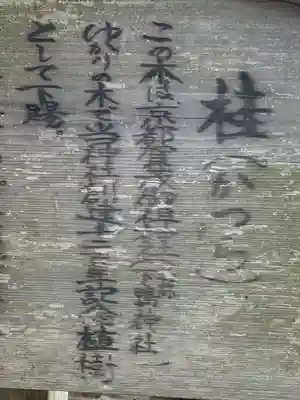 桂(かつら)
この木は京都賀茂御祖神社(下鴨神社)
ゆかりの木で当神社創建千二百年記念植樹
として下賜。